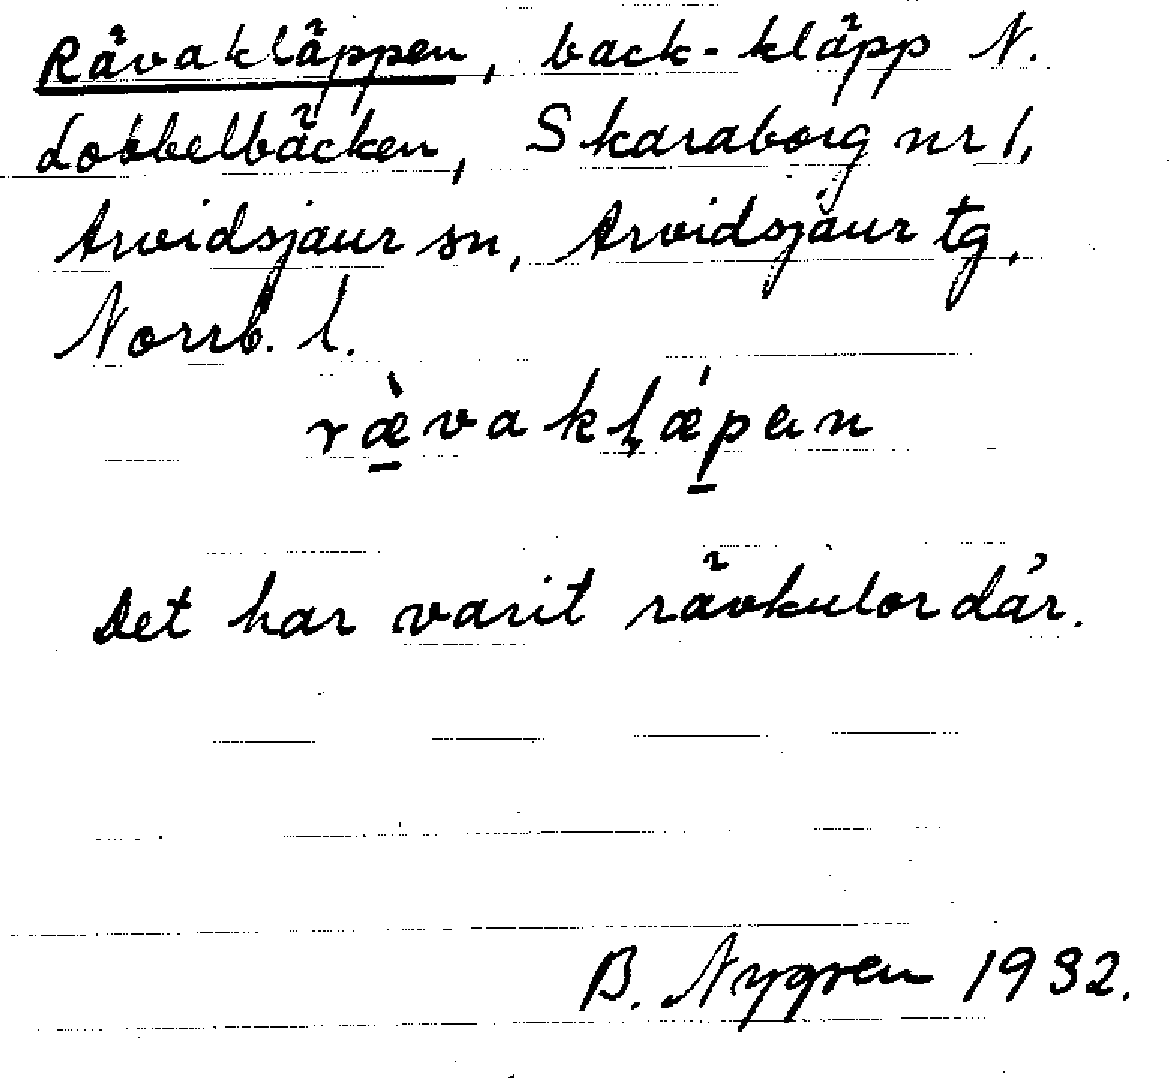 Rävakläppen, back-kläpp N.
Lobbelbäcken, Skaraborg nr 1,
Arvidsjaur sn, Arvidsjaur tg,
Norrb. l.
ræ̀vakḷǽpen
Det har varit rävkulor där.
B. Nygren 1932.